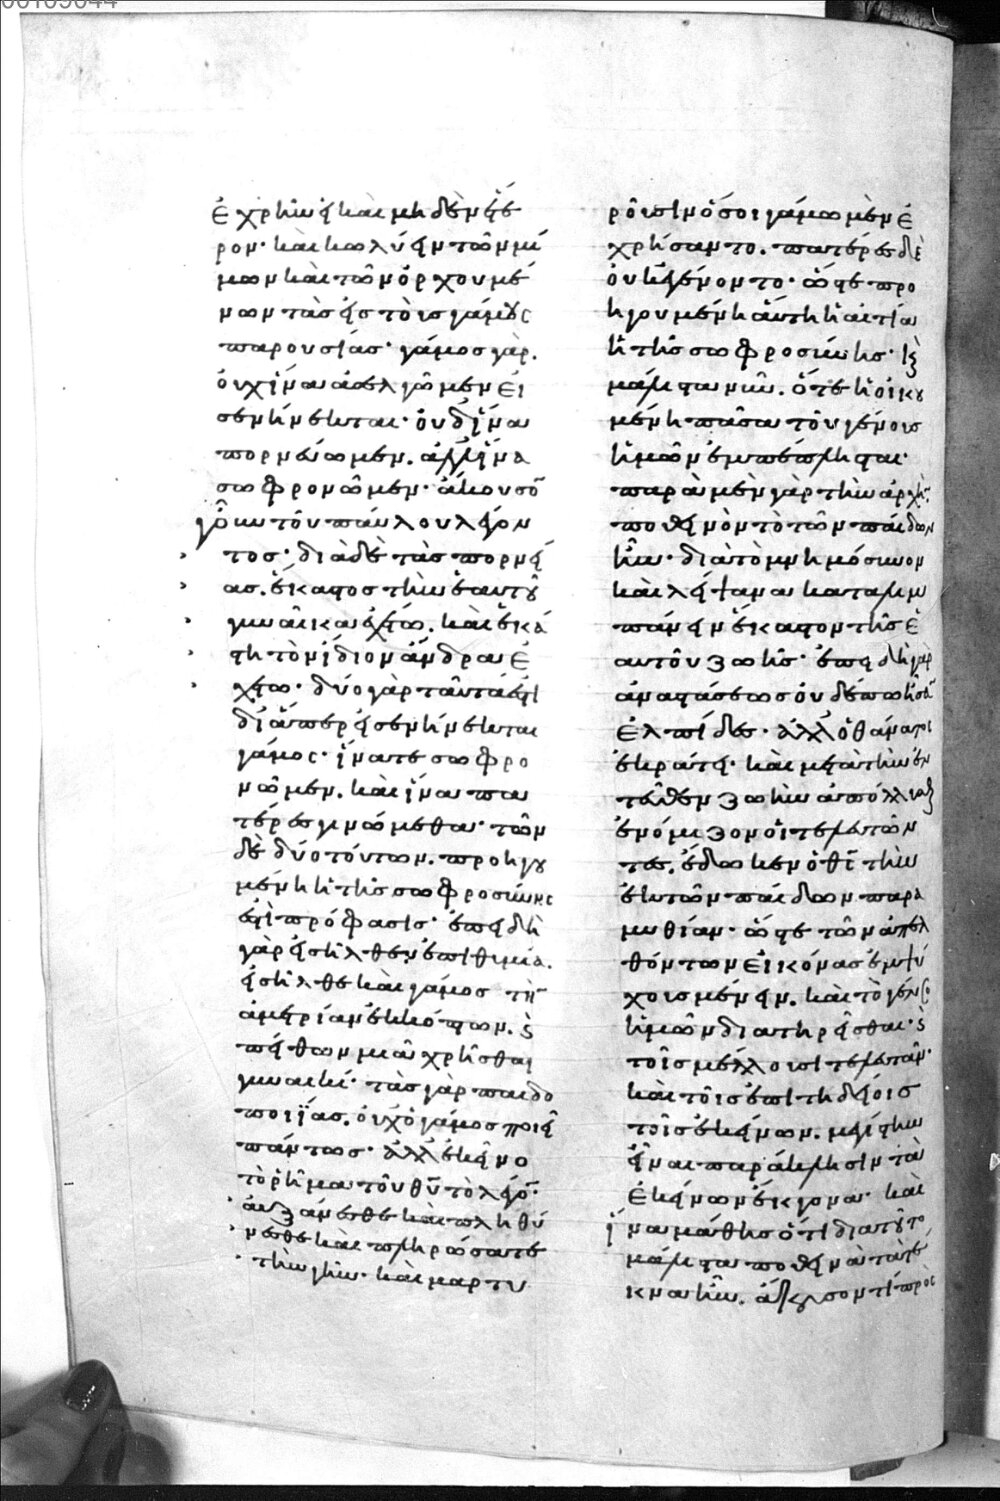 ἐχρῆν εἰ καὶ μηδὲν ἕτε
ρον· καὶ κωλύειν τῶν μί
μων καὶ τῶν ὀρχουμέ
νων τὰς εἰς τοῖς γάμους
παρουσίας· γάμος γὰρ.
οὐχ ἵνα ἀσελγῶμεν εἰ
σενήνεκται· οὐδ' ἵνα
πορνεύωμεν. ἀλλ' ἵνα
σωφρονῶμεν· ἄκουσο
γοῦν τοῦ παύλου λέγον
τος· διὰ δὲ τὰς πορνεί
ας. ἕκαστος τὴν ἑαυτοῦ
γυναῖκα ἐχέτω. καὶ ἑκά
στη τὸν ἴδιον ἄνδρα ἐ
χέτω· δύο γὰρ ταῦτά ἐστι
δι' ἅπερ εἰσενήνεκται
γάμος· ἵνα τε σωφρο
νῶμεν. καὶ ἵνα πα
τέρες γινώμεθα· τῶν
δὲ δύο τούτων. προηγου
μένη ἡ τῆς σωφροσύνης
ἐστὶ πρόφασις· ἐπειδὴ
γὰρ εἰσῆλθεν ἐπιθυμία.
εἰσῆλθε καὶ γάμος τὴν
ἀμετρίαν ἐκκόπτων. καὶ
πείθων μιᾶ χρῆσθαι
γυναικί· τὰς γὰρ παιδο
ποιΐας. οὐχ ὁ γάμος ποιεῖ
πάντως· ἀλλ' ἐκεῖνο
τὸ ῥῆμα τοῦ θυ τὸ λέγον·
αὐξάνεσθε καὶ πληθύ
νεσθε καὶ πληρώσατε
τὴν γῆν· καὶ μαρτυ
ροῦσιν ὅσοι γάμω μὲν ἐ
χρήσαντο. πατέρες δὲ
οὐκ ἐγένοντο· ὥστε προ
ηγουμένη αὕτη ἡ αἰτία
ἡ τῆς σωφροσύνης· καὶ
μάλιστα νῦν. ὅτε ἡ οἰκου
μένη πᾶσα τοῦ γένους
ἡμῶν ἐμπέπλησται·
παρὰ μὲν γὰρ τὴν ἀρχὴν
ποθεινὸν τὸ τῶν παίδων
ἦν· διὰ τὸ μνημόσυνον
καὶ λείψανα καταλιμ
πάνειν ἕκαστον τῆς ἑ
αυτοῦ ζωῆς· ἐπειδὴ γὰρ
ἀναστάσεως οὐδέπω ἦσαν
ἐλπίδες· ἀλλ' ὁ θάνατος
ἐκράτει· καὶ μετὰ τὴν ἐν
τεῦθεν ζωὴν ἀπόλλυσθαι
ἐνόμιζον οἱ τελευτῶν
τες. ἔδωκεν ὁ θς τὴν
ἐκ τῶν παίδων παρα
μυθίαν· ὥστε τῶν ἀπελ
θόντων εἰκόνας ἐμψύ
χους μένειν. καὶ τὸ γένος
ἡμῶν διατηρεῖσθαι· καὶ
τοῖς μέλλουσι τελευτᾶν·
καὶ τοῖς ἐπιτηδείοις
τοῖς ἐκείνων. μεγίστην
εἶναι παράκλησιν τὰ
ἐκείνων ἔκγονα· καὶ
ἵνα μάθης ὅτι διὰ τοῦτο
μάλιστα ποθεινὰ τὰ τέ
κνα ἦν. ἄκουσον τί πρὸς